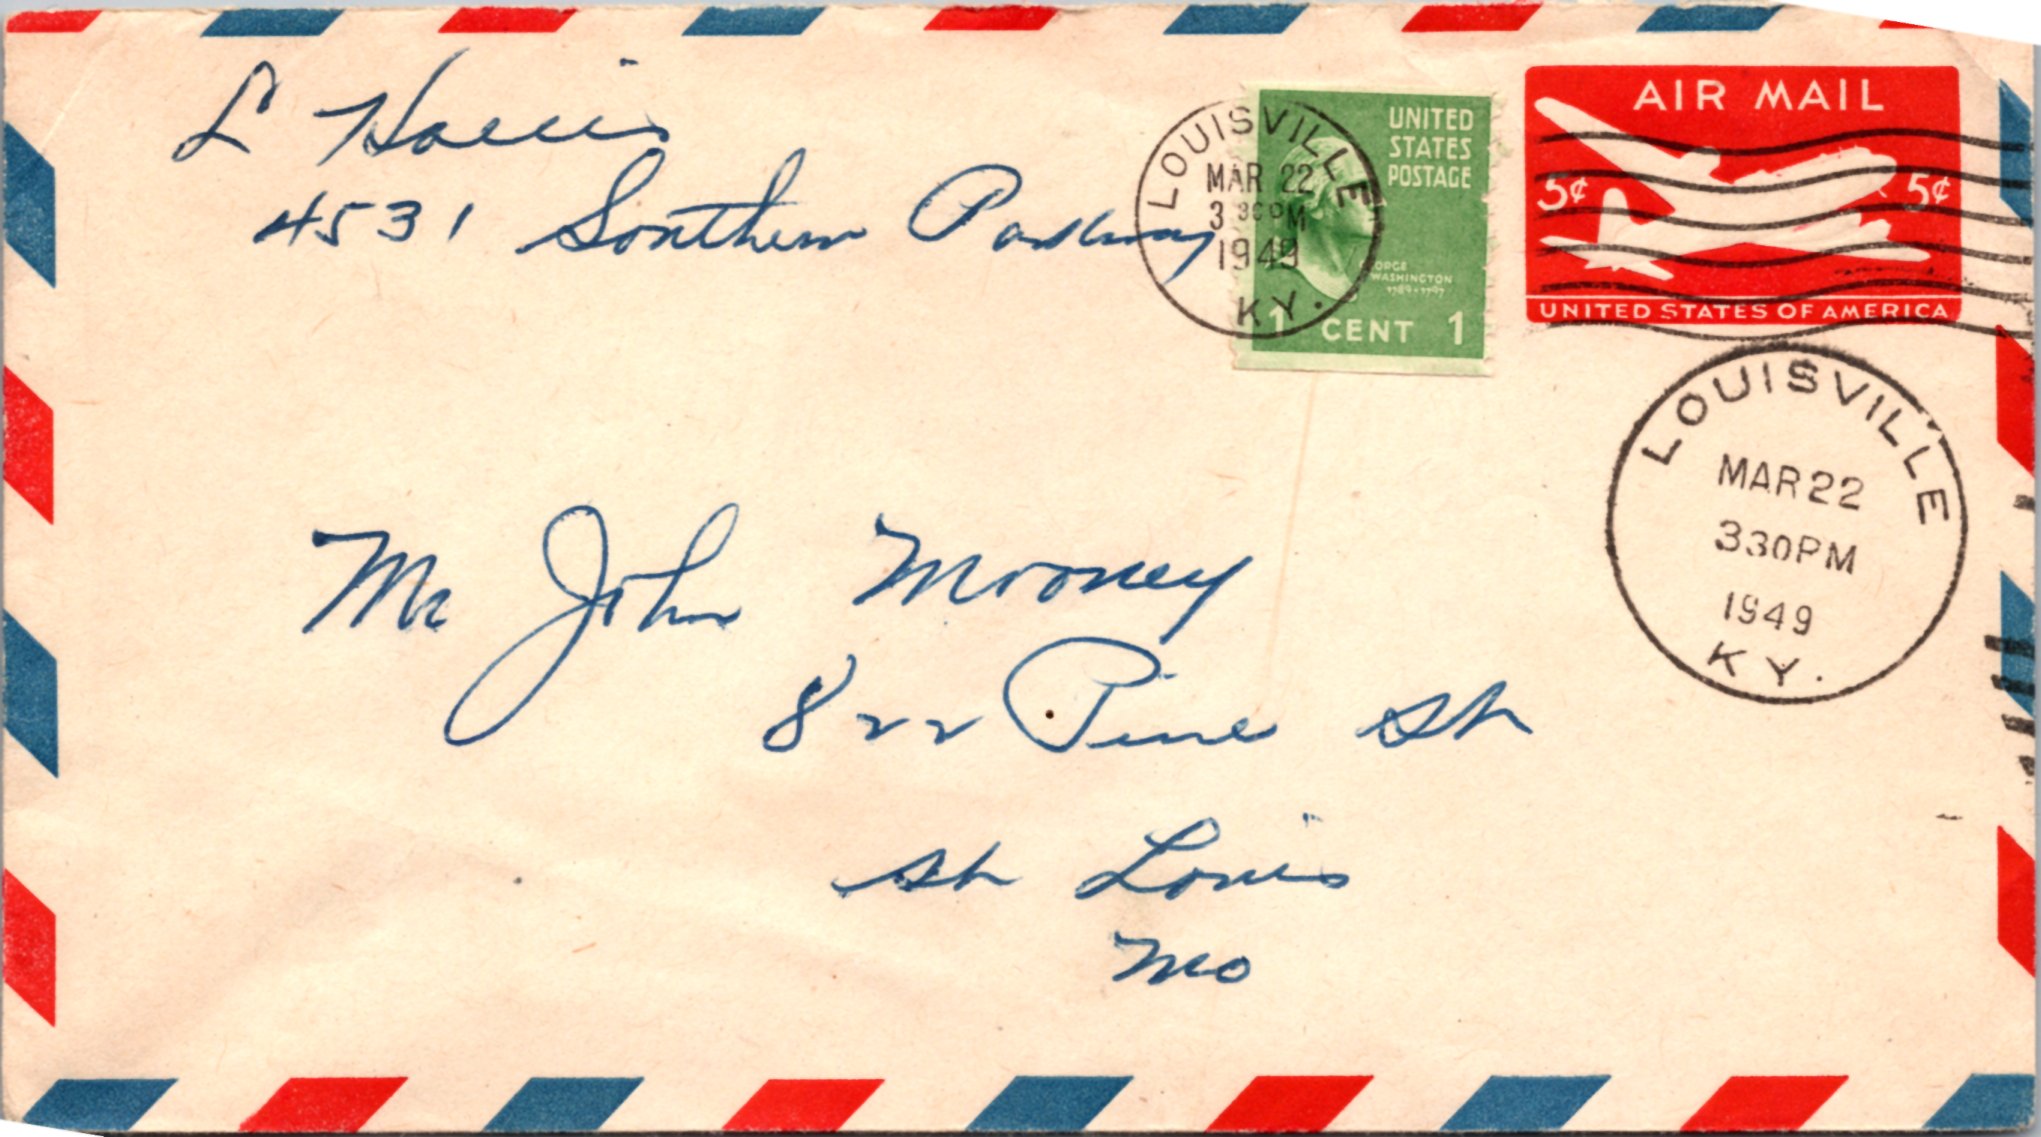 L Harris
4531 Southern Parkway
LOUISVILLE
MAR 22
3 30 PM
1949
KY.
UNITED
STATES
POSTAGE
GEORGE
WASHINGTON
1789-1797
1 CENT 1
AIR MAIL
5¢ 5¢
UNITED STATES OF AMERICA
LOUISVILLE
MAR 22
330PM
1949
KY.
Mr John Mooney
822 Pine St
St Louis
Mo